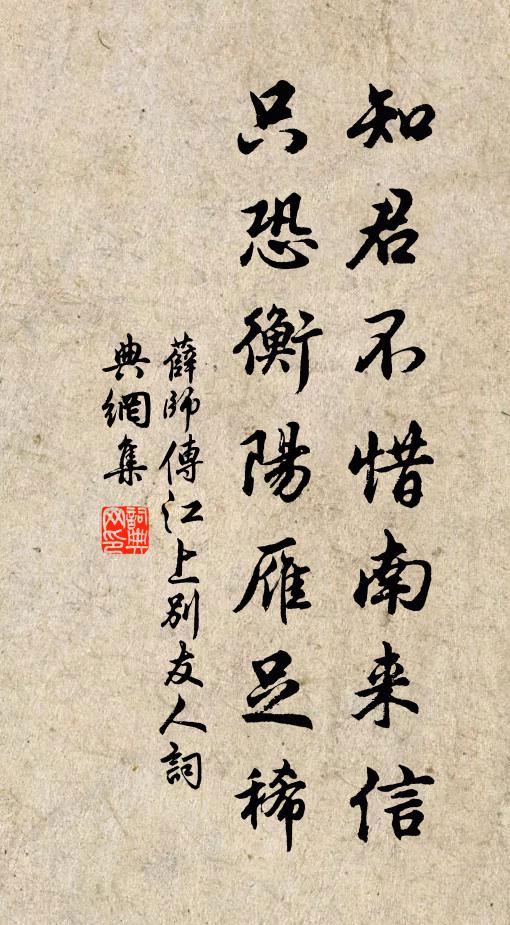 知君不惜南来信
只恐衡陽雁足稀
薛師傅江上别友人詞
典網集
詞典
网印